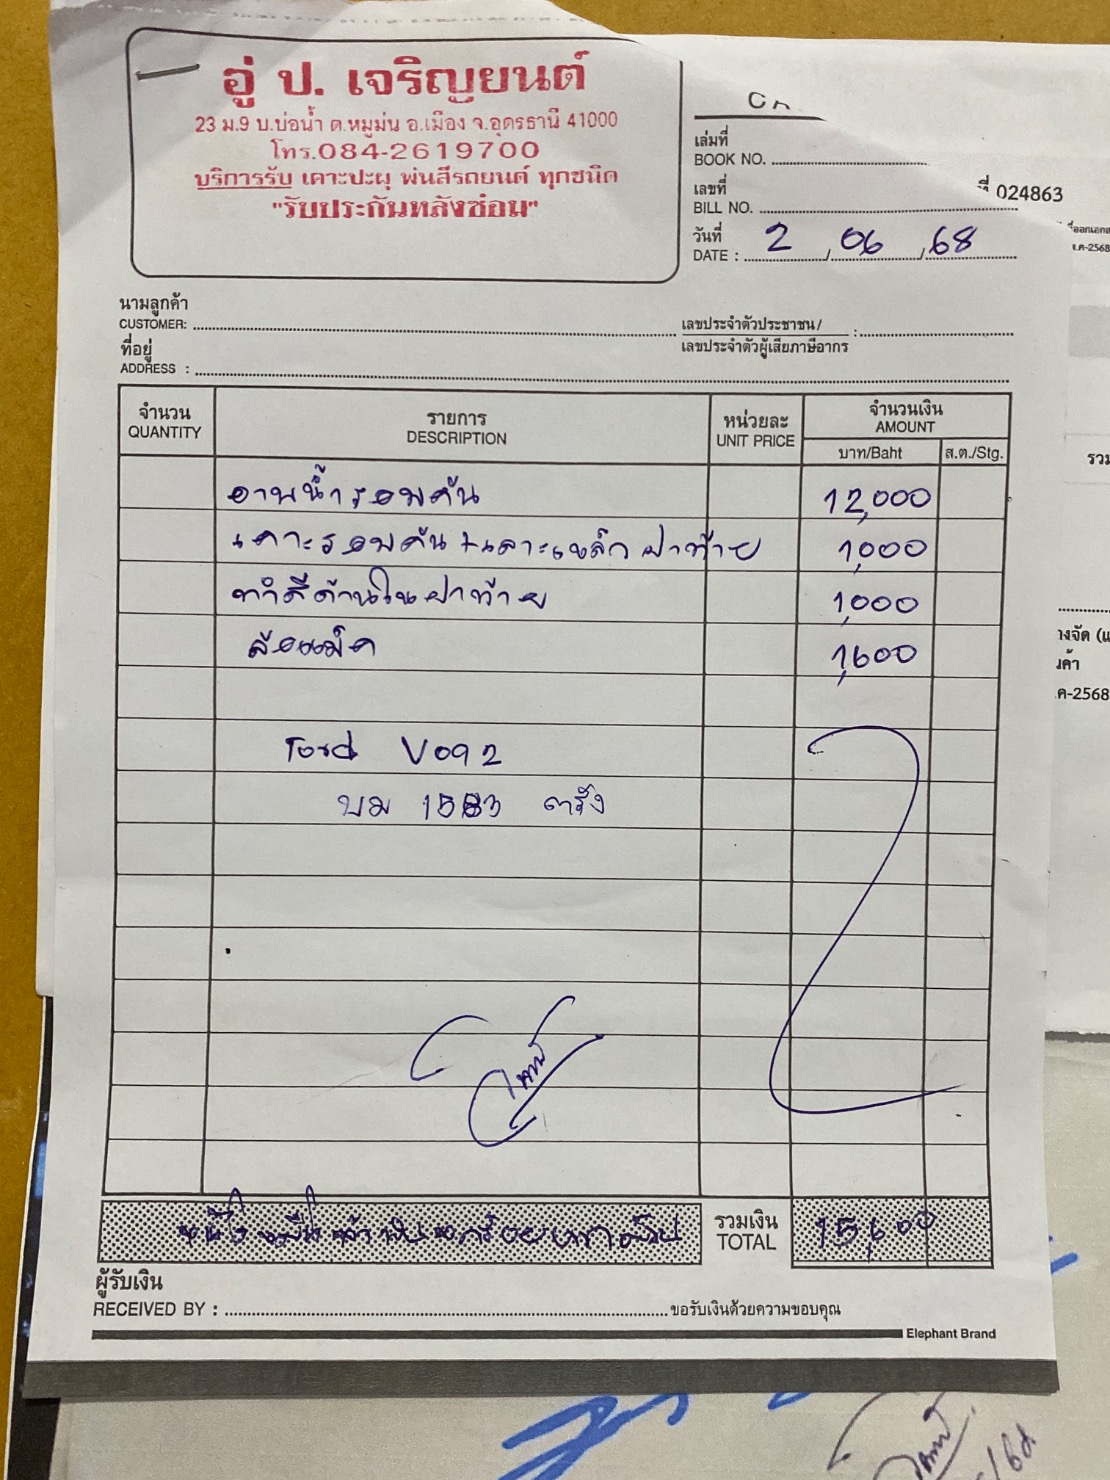 อู่ ป. เจริญยนต์
23 ม.9 บ.บ่อน้ำ ต.หมูม่น อ.เมือง จ.อุดรธานี 41000
โทร.084-2619700
บริการรับ เคาะปะผุ พ่นสีรถยนต์ ทุกชนิด
"รับประกันหลังซ่อม"
เล่มที่
BOOK NO.
เลขที่
BILL NO.
024863
วันที่
DATE : 2 / 06 / 68
นามลูกค้า
CUSTOMER:
เลขประจำตัวประชาชน/ :
เลขประจำตัวผู้เสียภาษีอากร
ที่อยู่
ADDRESS :
จำนวน รายการ หน่วยละ จำนวนเงิน
QUANTITY DESCRIPTION UNIT PRICE AMOUNT
บาท/Baht ส.ต./Stg.
อาบน้ำรอบคัน 12,000
เคาะรอบคัน + เคาะเหล็ก ฝาท้าย 1,000
ทำสีด้านในฝาท้าย 1,000
ล้อแม็ค 1,600
Ford
บม 1583 ตรัง
หนึ่งหมื่นห้าพันหกร้อยบาทถ้วน
รวมเงิน
TOTAL 15,600
ผู้รับเงิน
RECEIVED BY : ขอรับเงินด้วยความขอบคุณ
Elephant Brand